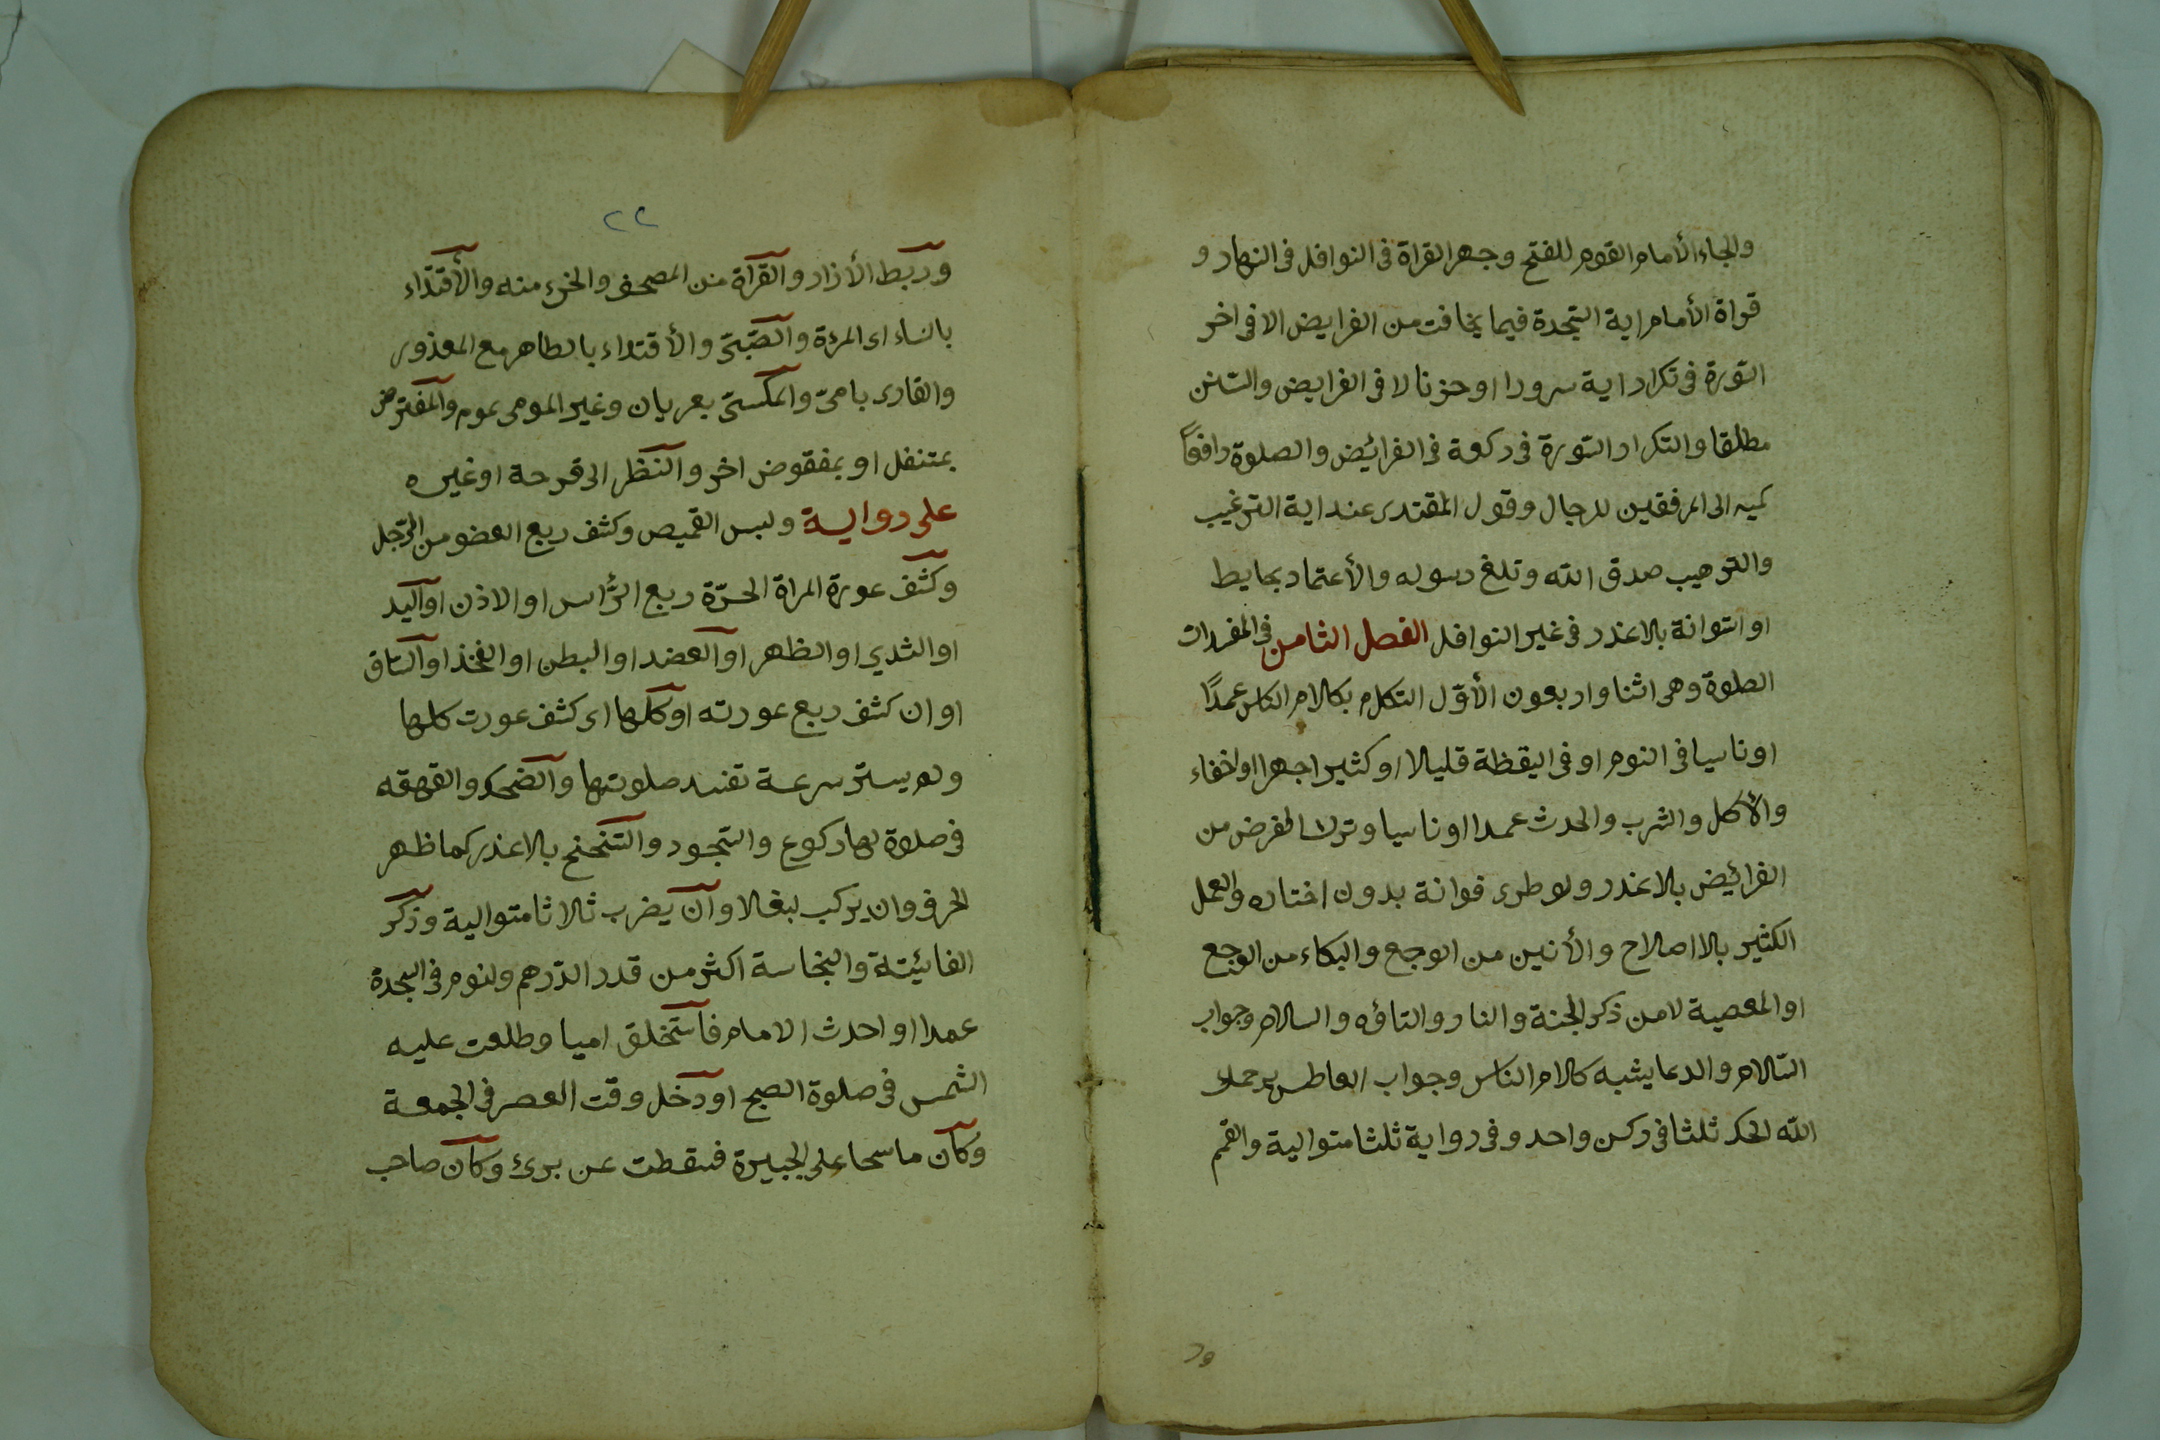 والجاء الأمام القوم للفتح وجهر القراة فى النوافل فى النهار و
قراة الأمام اية السّجدة فيما يخافت من الفرايض الا فى اخر
السّورة فى تكرار اية سرورا او حزنا لا فى الفرايض والسّنن
مطلقا والتكرار السّورة فى ركعة فى الفرائيض والصلوة رافعًا
كميه الى المرفقين للرجال وقول المقتدى عند اية الترغيب
والترهيب صدق الله وتلغ رسوله والأعتماد بحايط
او استوانة بلا عذر فى غير النوافل الفصل الثامن فى المفسدات
الصلوة وهى اثنا واربعون الأوّل التكلم بكلام الناس عمدًا
او ناسيا فى النوم او فى اليقظة قليلا او كثيرا جهرا او اخفاء
والأكل والشرب والحدث عمدا او ناسيا وترك الفرض من
الفرائيض بلا عذر ولو طرى فوانة بدون اختاره والعمل
الكثير بلا اصلاح والأنين من الوجع والبكاء من الوجع
او المعصية لا من ذكر الجنة والنار والتاؤه والسلام وجواب
السّلام والدعا يشبه كلام الناس وجواب العاطس يرحمك
الله الحك ثلثا فى ركن واحد وفى رواية ثلثا متوالية والقم
ور
٢٢
وربط الأزار والقرآة من المصحف والخرء منه والأقتداء
بالنساء اى المرءة والصّبىّ والأقتداء بالطاهر مع المعذور
والقارى بامىّ والمكسىّ بعريان وغير المومى بموم والمفترض
بمتنفل او بمفقوض اخر والنّظر الى قرحة او غيره
على رواية ولبس القميص وكشف ربع العضو من الرّجل
وكشف عورة المراة الحرّة ربع الرّأس او الاذن او اليد
او الثدي او الظهر او العضد او البطن او الفخذ او السّاق
او ان كشف ربع عورته او كلّها اى كشف عورت كلها
ولم يستر سرعة تفسد صلوتها والضحك والقهقه
فى صلوة لها ركوع والسّجود والتّنحنح بلا عذر كما ظهر
الحرف وان يركب لبغلا وان يضرب ثلاثا متوالية وذكر
الفائيتة والنجاسة اكثر من قدر الدّرهم ولنوم فى السجدة
عمدا او احدث الامام فاستخلق اميا وطلعت عليه
الشمس فى صلوة الصبح او دخل وقت العصر فى الجمعة
وكان ماسحا على الجبيرة فسقطت عن برئ وكان صاحب